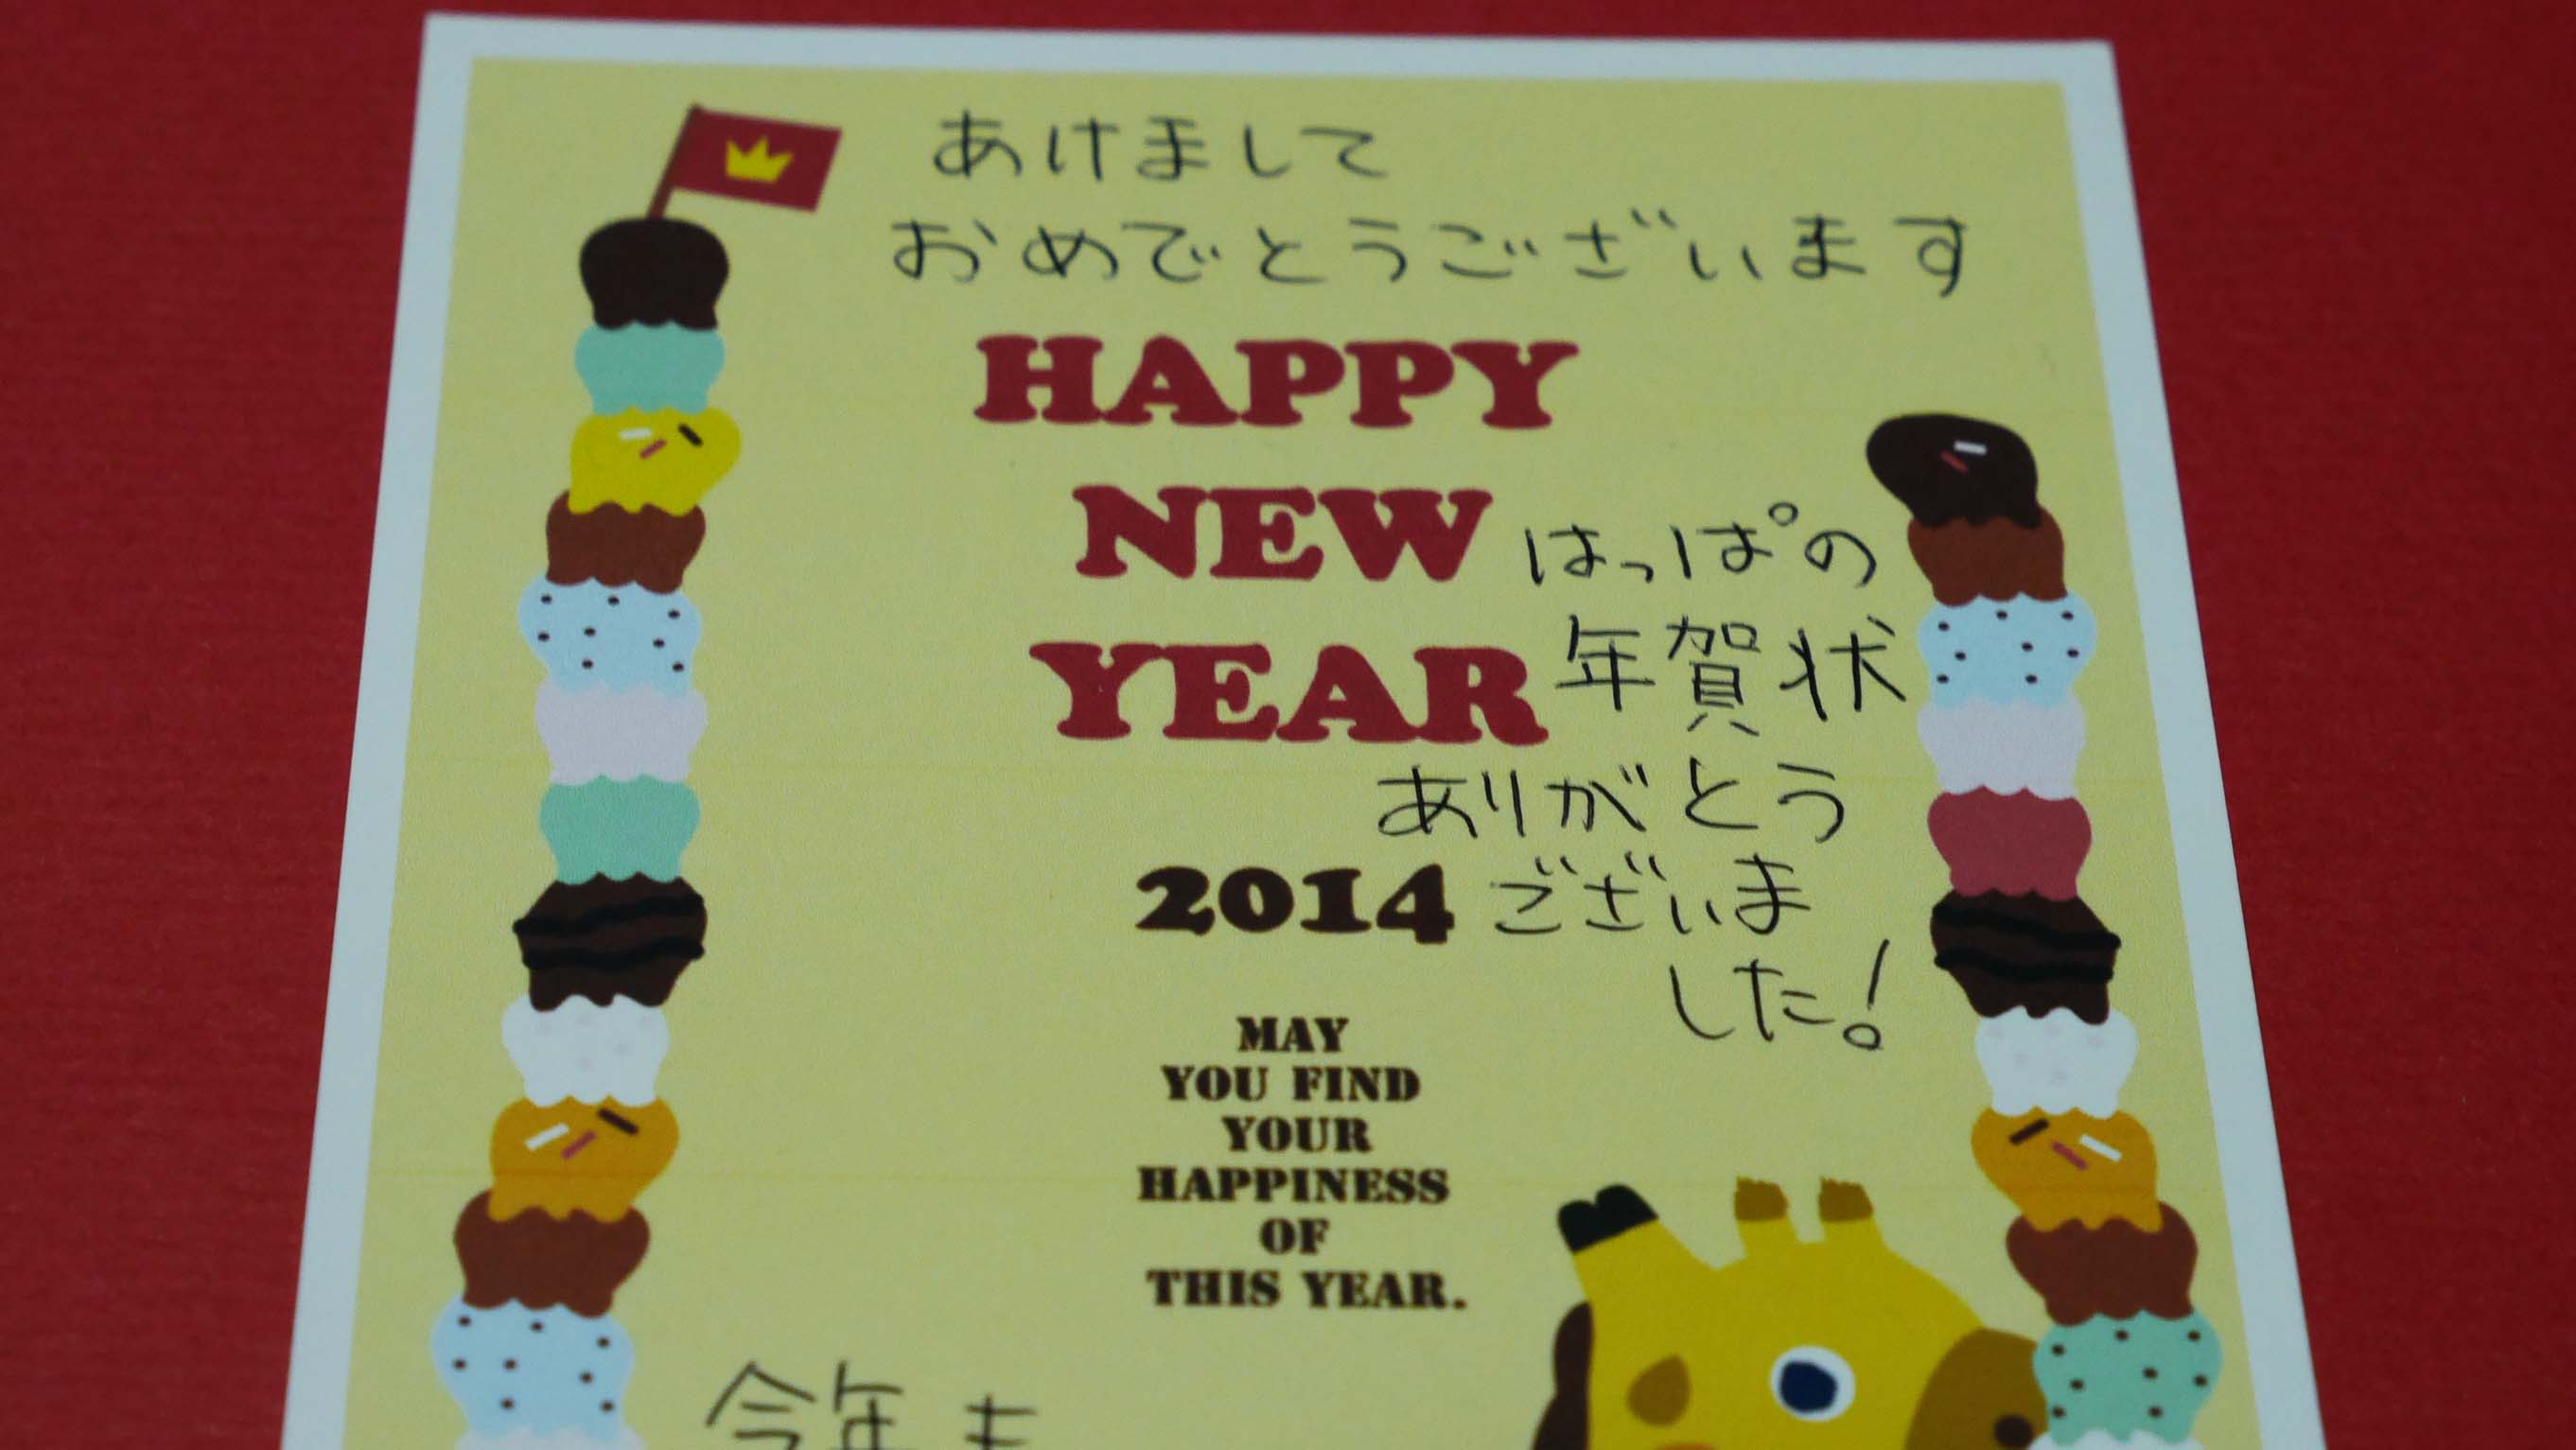 あけまして
おめでとうございます
HAPPY
NEW
YEAR
はっぱの
年賀状
ありがとう
ございま
した!
2014
MAY
YOU FIND
YOUR
HAPPINESS
OF
THIS YEAR.
今年も